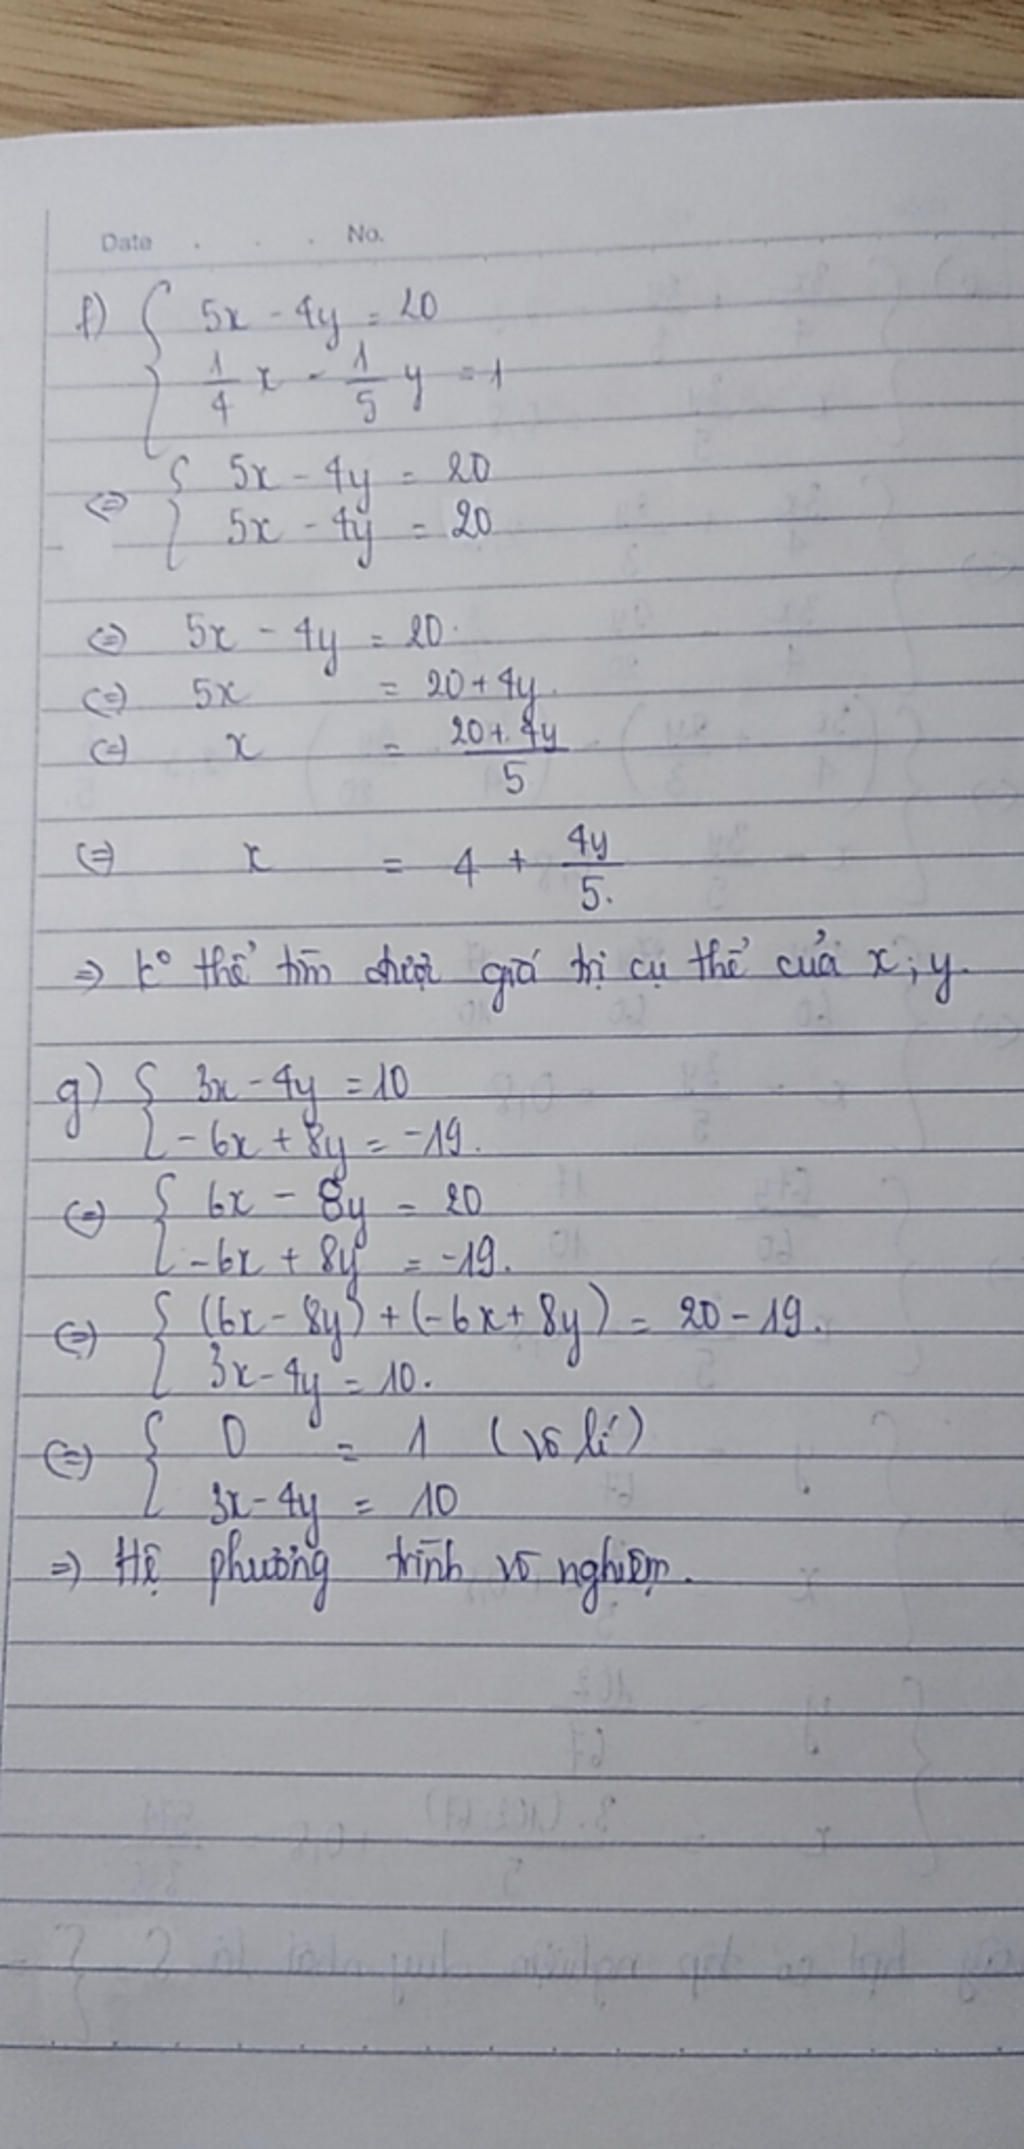 Date . . . No.
f) { 5x - 4y = 20
1/4 x - 1/5 y = 1
⇔ { 5x - 4y = 20
5x - 4y = 20
⇔ 5x - 4y = 20.
⇔ 5x = 20 + 4y.
⇔ x = (20 + 4y)/5
⇔ x = 4 + 4y/5.
⇒ k° thể tìm được giá trị cụ thể của x; y.
g) { 3x - 4y = 10
-6x + 8y = -19.
⇔ { 6x - 8y = 20
-6x + 8y = -19.
⇔ { (6x - 8y) + (-6x + 8y) = 20 - 19.
3x - 4y = 10.
⇔ { 0 = 1 (vô lí)
3x - 4y = 10
⇒ Hệ phương trình vô nghiệm.